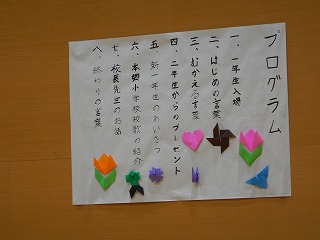 プログラム
一、一年生入場
二、はじめの言葉
三、むかえる言葉
四、二年生からのプレゼント
五、新一年生のあいさつ
六、本郷小学校校歌の紹介
七、校長先生のお話
八、終わりの言葉